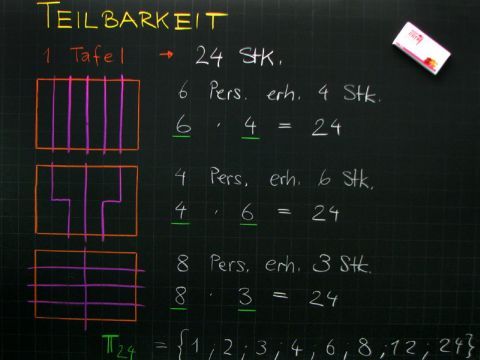 TEILBARKEIT
1 Tafel → 24 Stk.
6 Pers. erh. 4 Stk.
6 · 4 = 24
4 Pers. erh. 6 Stk.
4 · 6 = 24
8 Pers. erh. 3 Stk.
8 · 3 = 24
T24 = {1; 2; 3; 4; 6; 8; 12; 24}